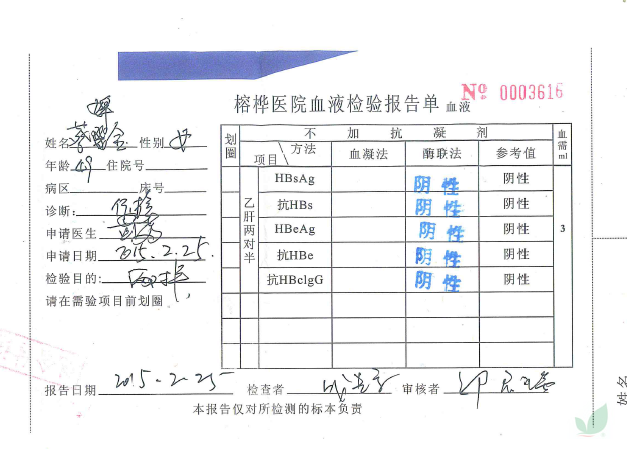 榕桦医院血液检验报告单 血液 № 0003616
姓名 性别 女
年龄 49 住院号
病区 床号
诊断:
申请医生
申请日期 2015.2.25.
检验目的:
请在需验项目前划圈
划圈 不加抗凝剂 血需ml
项目 方法 血凝法 酶联法 参考值
乙肝两对半
HBsAg 阴性 阴性
抗HBs 阴性 阴性
HBeAg 阴性 阴性
抗HBe 阴性 阴性
抗HBclgG 阴性 阴性
3
报告日期 2015-2-25 检查者 审核者
本报告仅对所检测的标本负责
姓名